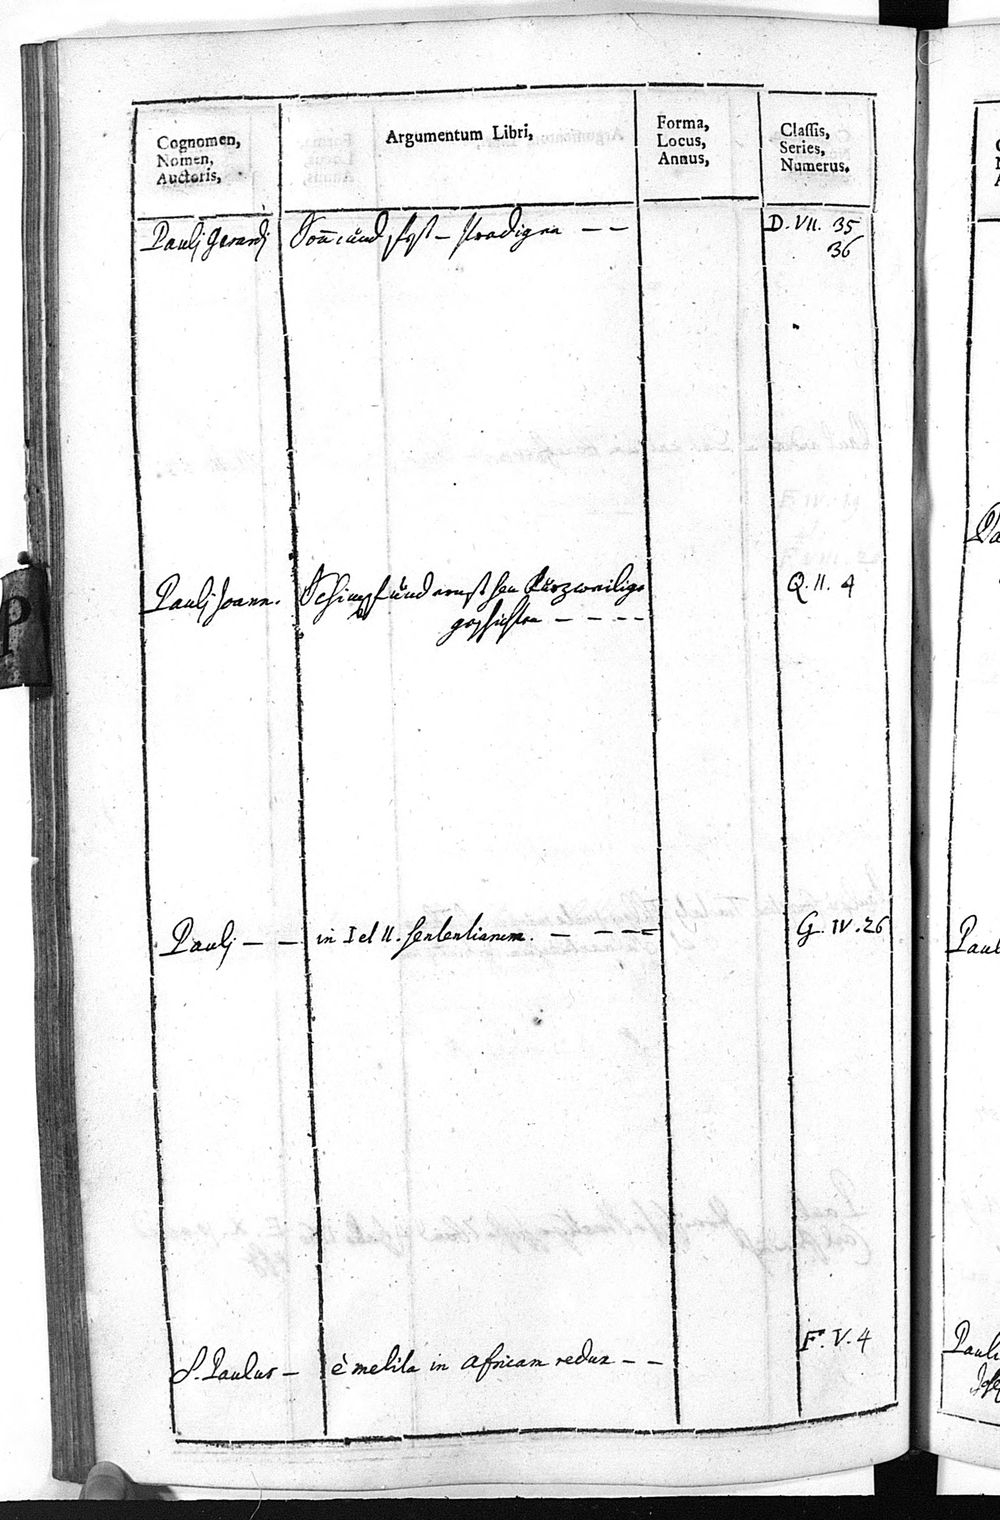 Cognomen,
Nomen,
Auctoris,
Argumentum Libri,
Forma,
Locus,
Annus,
Classis,
Series,
Numerus.
Paulj Gerardj Son: und fest-predigen — — D. VII. 35
36
Paulj Joann. Schimpf und ernst Kurzweilige Q. II. 4
geschichten — — — —
Paulj — — in I et II. sententiarum. — — — — G. IV. 26
S. Paulus — è melita in African redux — — F. V. 4
P
Paul
Pauli